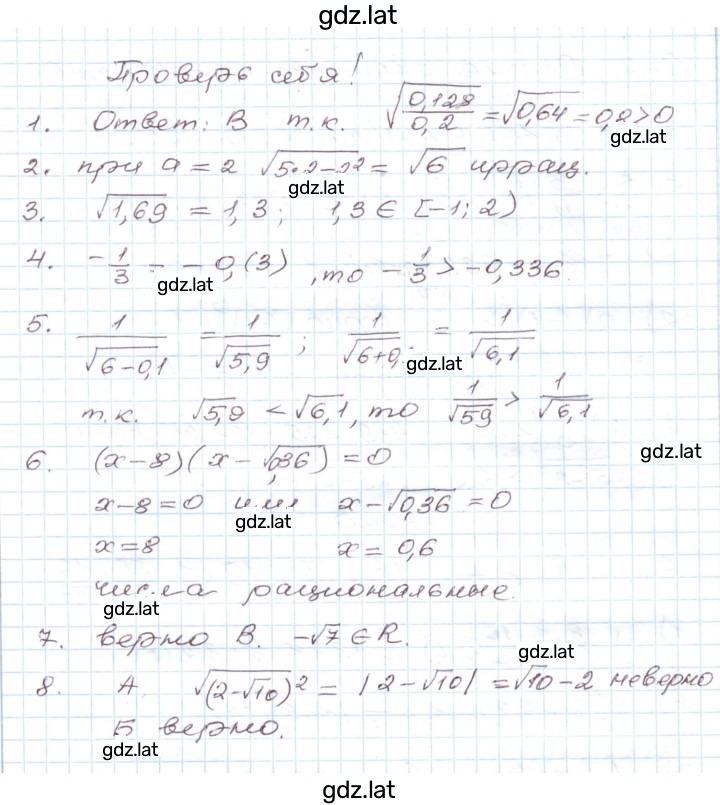 gdz.lat
Проверь себя!
1. Ответ: В т.к. √(0,128/0,2) = √0,64 = 0,8 > 0
gdz.lat
2. при a = 2 √(5·2-2²) = √6 иррац.
gdz.lat
3. √1,69 = 1,3; 1,3 ∈ [-1; 2)
4. -1/3 = -0,(3), то -1/3 > -0,336
gdz.lat
5. 1/√(6-0,1) = 1/√5,9 ; 1/√(6+0, = 1/√6,1
gdz.lat
т.к. √5,9 < √6,1, то 1/√59 > 1/√6,1
gdz.lat
6. (x-8)(x-√0,36) = 0
x-8=0 или x-√0,36 = 0
gdz.lat
x=8 x= 0,6
числа рациональные.
gdz.lat
7. верно В. -√7 ∈ R.
gdz.lat
8. А √(2-√10)² = |2-√10| = √10-2 неверно
Б верно.
gdz.lat
gdz.lat